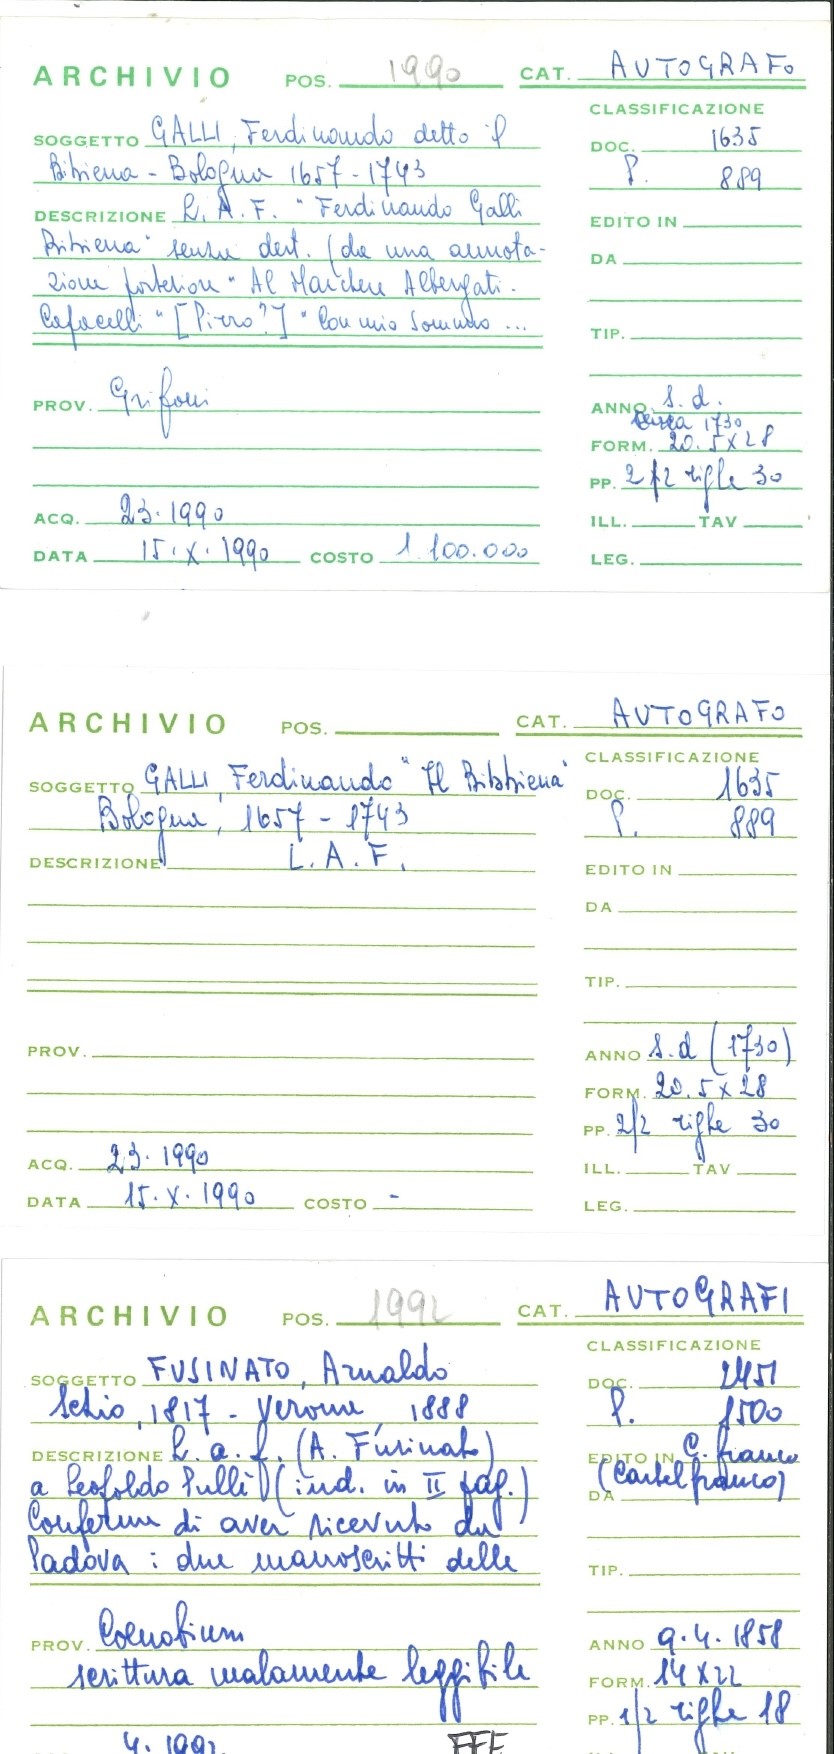 ARCHIVIO POS. 1990 CAT. AUTOGRAFO
CLASSIFICAZIONE
SOGGETTO GALLI, Ferdinando detto il
DOC. 1635
Bibiena - Bologna 1657-1743
P. 889
DESCRIZIONE L. A. F. "Ferdinando Galli
EDITO IN
Bibiena" senza dest. (da una annota-
DA
zione posteriore "Al Marchese Albergati.
Capacelli" [Pirro?] "Con mio sommo ...
TIP.
PROV. Grifoni
ANNO s. d.
circa 1730
FORM. 20.5 x 28
PP. 2/2 righe 30
ACQ. 23.1990
ILL. TAV
DATA 15.X.1990 COSTO 1.100.000
LEG.
ARCHIVIO POS. CAT. AUTOGRAFO
CLASSIFICAZIONE
SOGGETTO GALLI, Ferdinando "Il Bibbiena"
DOC. 1635
Bologna, 1657-1743
P. 889
DESCRIZIONE L. A. F.
EDITO IN
DA
TIP.
PROV.
ANNO s. d (1730)
FORM. 20.5 x 28
PP. 2/2 righe 30
ACQ. 23.1990
ILL. TAV
DATA 15.X.1990 COSTO -
LEG.
ARCHIVIO POS. 1992 CAT. AUTOGRAFI
CLASSIFICAZIONE
SOGGETTO FUSINATO, Arnaldo
DOC. 2451
Schio, 1817 - Verona, 1888
P. 1500
DESCRIZIONE L. a. f. (A. Fusinato)
EDITO IN C. franco
a Leopoldo Pullè (ind. in II pag.)
(Castelfranco)
DA
Conferma di aver ricevuto da
Padova : due manoscritti delle
TIP.
PROV. Coenobium
ANNO 9.4.1858
scrittura malamente leggibile
FORM. 14 x 22
PP. 1/2 righe 18
4.1992
FFF